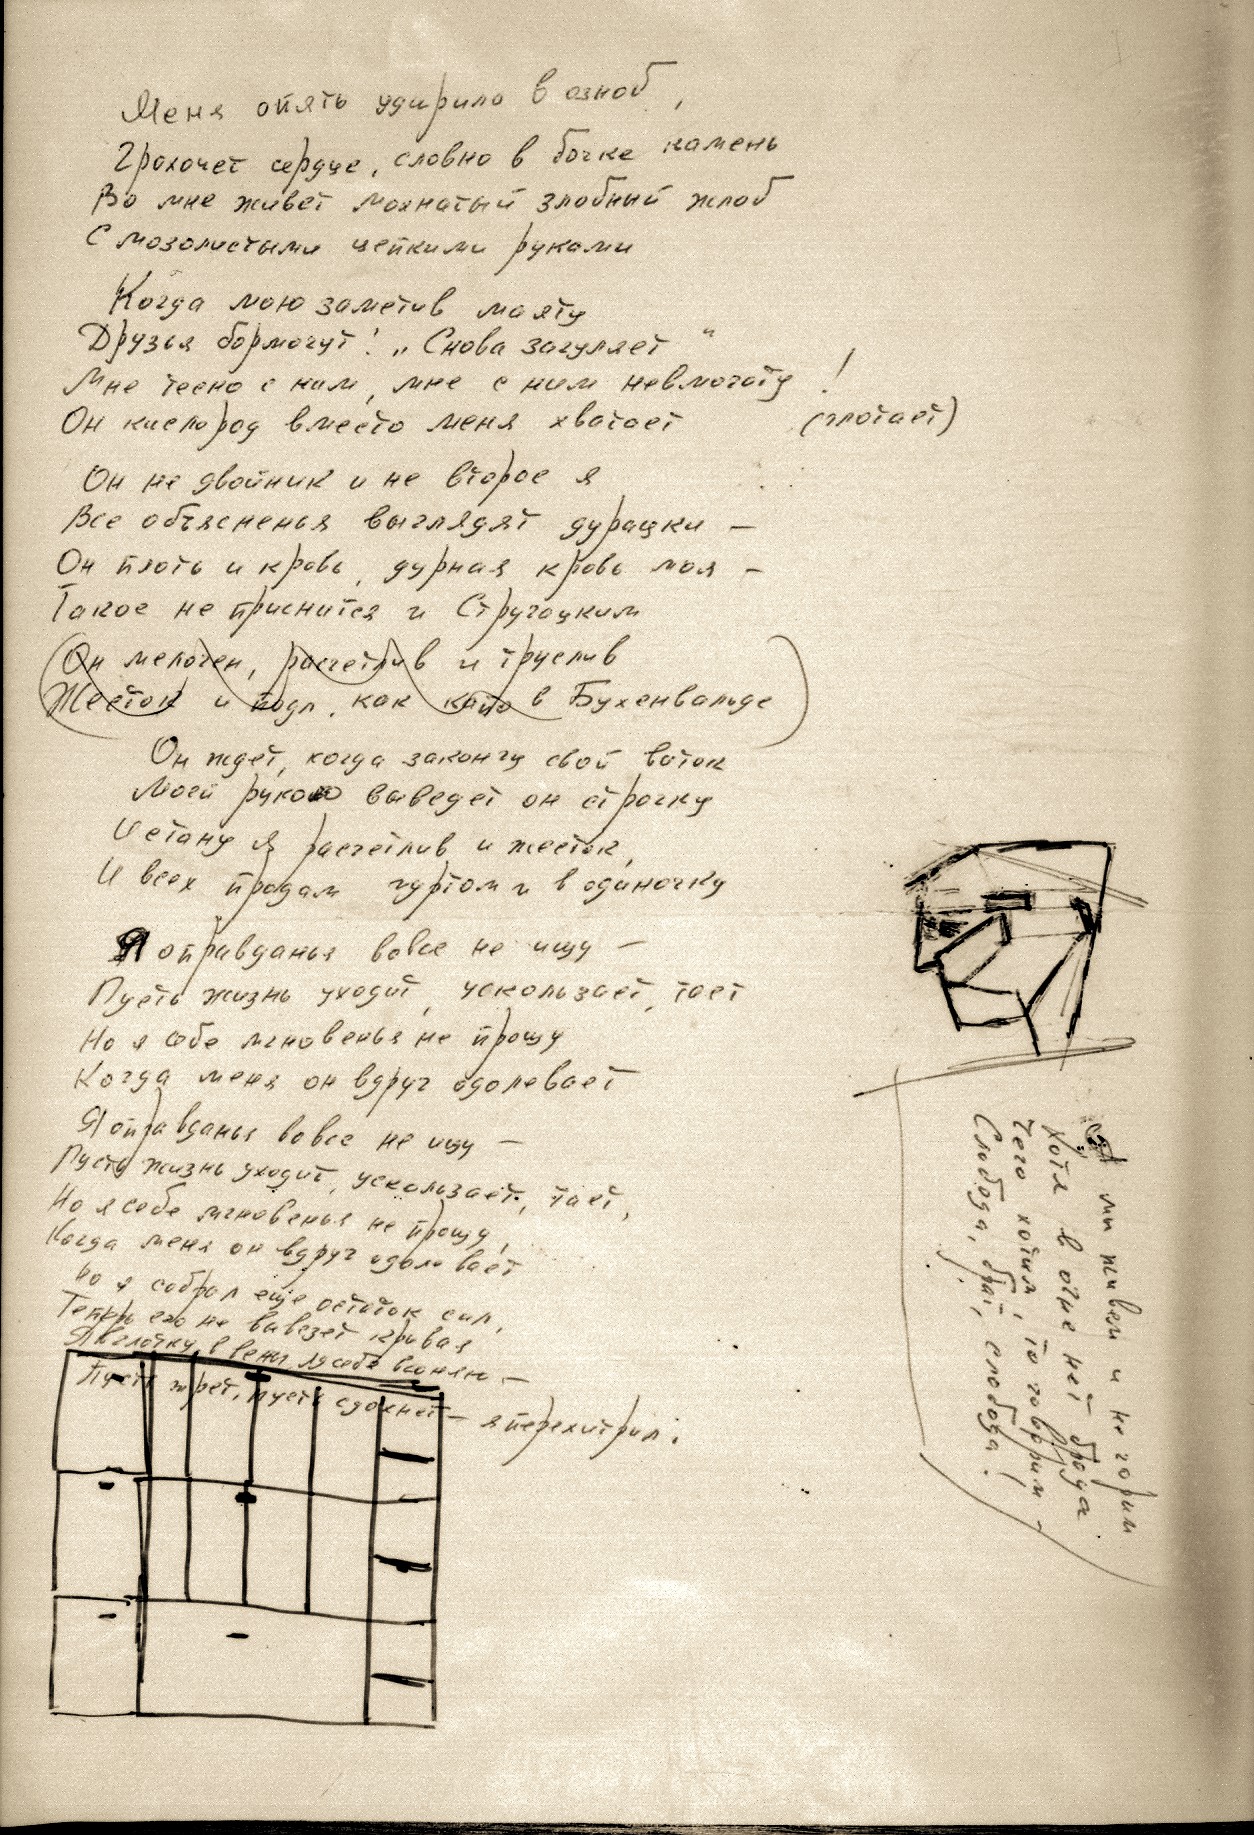 Меня опять ударило в озноб,
Грохочет сердце, словно в бочке камень
Во мне живет мохнатый злобный жлоб
С мозолистыми цепкими руками
Когда мою заметив маяту
Друзья бормочут: „Снова загуляет"
Мне тесно с ним, мне с ним невмоготу!
Он кислород вместо меня хватает (глотает)
Он не двойник и не второе я
Все объясненья выглядят дурацки —
Он плоть и кровь, дурная кровь моя —
Такое не приснится и Стругацким
(Он мелочен, расчетлив и труслив
Жесток и подл, как капо в Бухенвальде)
Он ждет, когда закончу свой виток
Моей рукою выведет он строчку
И стану я расчетлив и жесток,
И всех продам гуртом и в одиночку
Я оправданья вовсе не ищу —
Пусть жизнь уходит, ускользает, тает
Но я себе мгновенья не прощу
Когда меня он вдруг одолевает
Я оправданья вовсе не ищу —
Пусть жизнь уходит, ускользает, тает,
Но я себе мгновенья не прощу,
Когда меня он вдруг одолевает
Но я собрал еще остаток сил,
Теперь его не вывезет кривая
Я в глотку, в вены яд себе вгоняю —
Пусть жрет, пусть сдохнет — я перехитрил.
А мы живем и не горим
Хотя в огне нет брода
Чего хотим, то говорим —
Слобода, брат, слобода!